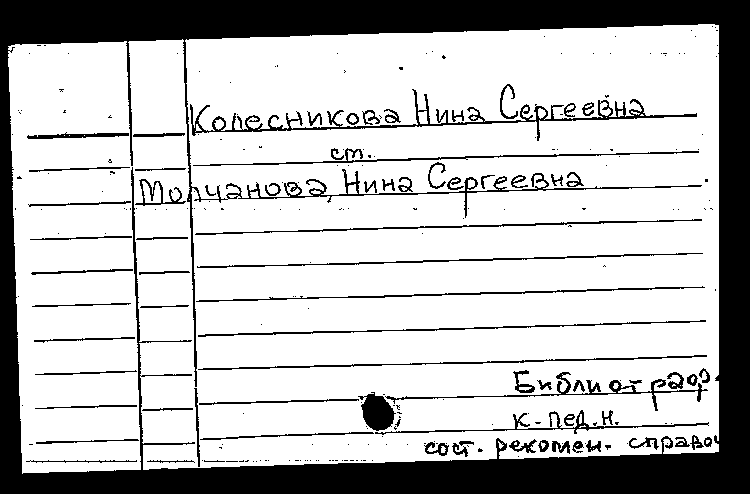 Колесникова Нина Сергеевна
ст.
Молчанова, Нина Сергеевна
Библиотграф.
к. пед. н.
сост. рекомен. справоч